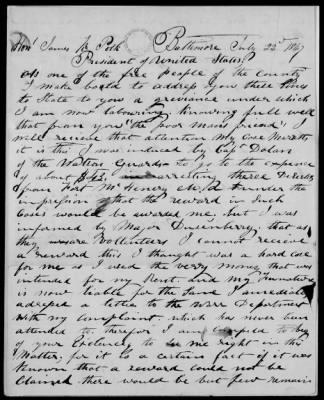 Hon' James K Polk Baltimore July 22d 1847
President of United States
As one of the free people of the County
I make bold to address you these lines
to State to you a grievance under which
I am now labouring, knowing full well
that from you "the poor mans friend"
will receive that attention it
it is this I was induced by Capt Dolan
of the Watson Guards to go to the expense
of about in arresting three
from Fort McHenry Md under the
impression that the reward in Such
Cases would be awared me, but I was
informed by Major Dusenberry, that as
they were I cannot receive
a reward this I thought was a hard case
for me as I used the very money that was
intended for my Rent and my
is now liable for the Same, I immediately
adressed a letter to the Warr Department
with my complaint, which has never been
attended to, therefor I am to beg
of your Exelency to See me right in this
Matter, for it is a certain fact if it was
known that a reward could not be
Claimed there would be but few